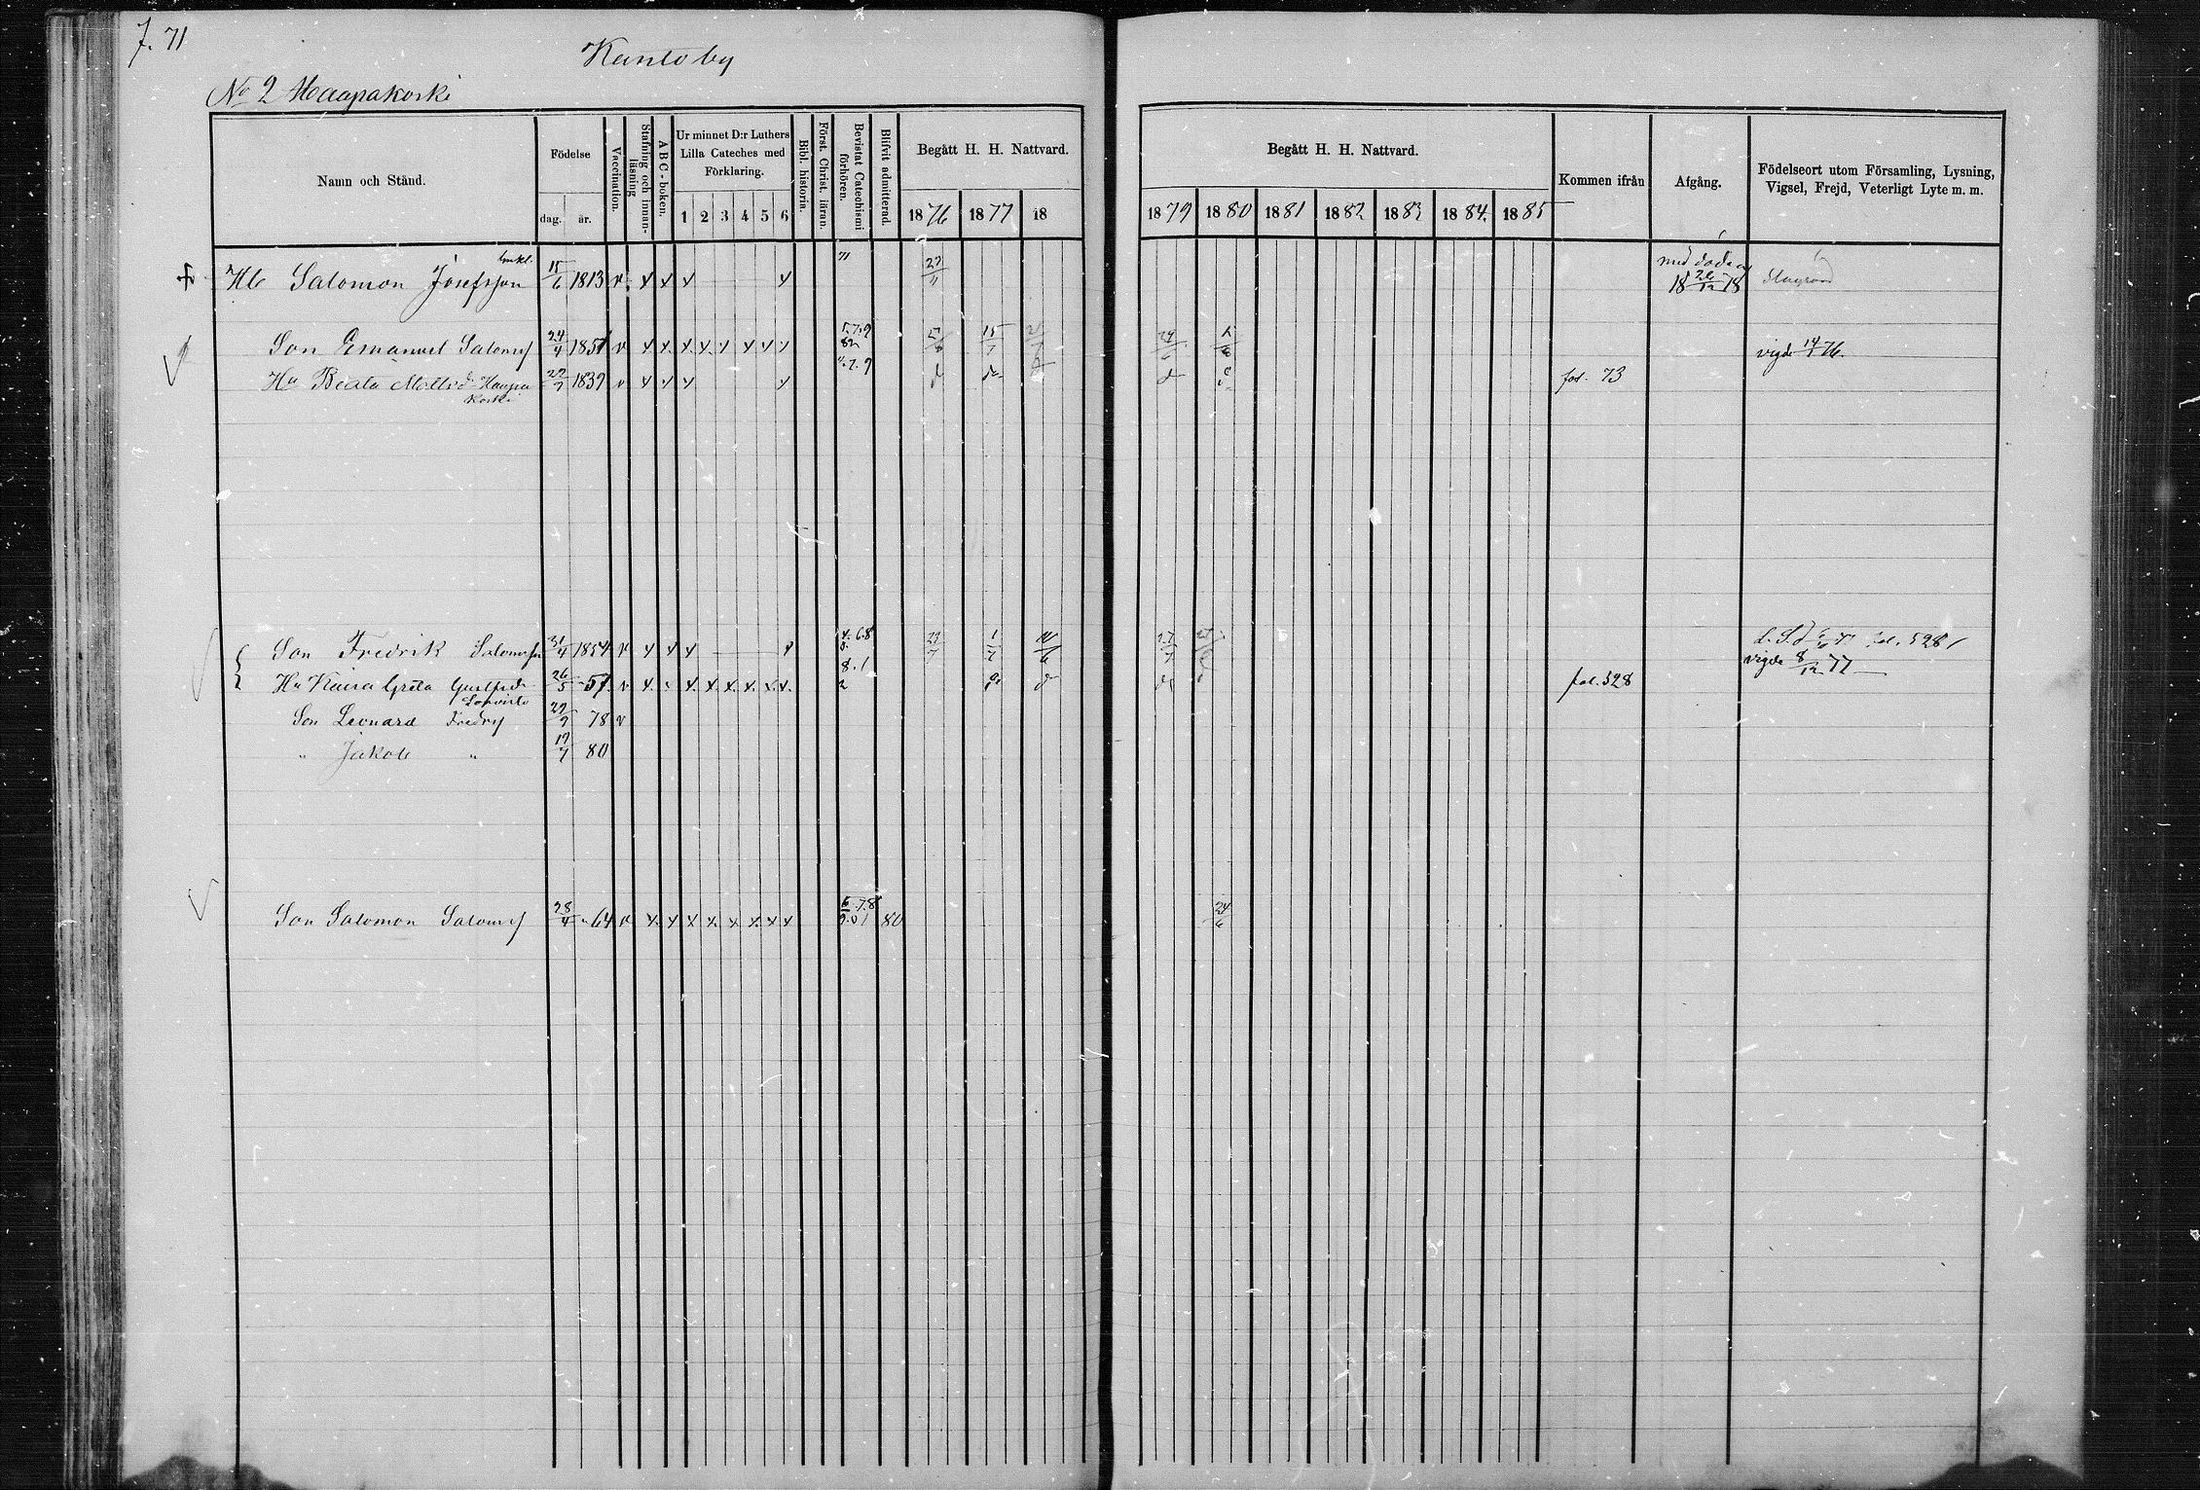 f. 71
Kantoby
No 2 Haapakoski
Namn och Stånd.
Födelse
dag. år.
Vaccination.
Stafning och innan-läsning
ABC-boken.
Ur minnet D:r Luthers Lilla Cateches med Förklaring.
1 2 3 4 5 6
Bibl. historia.
Först. Christ. läran.
Bevistat Catechismi förhören.
Blifvit admitterad.
Begått H. H. Nattvard.
1876 1877 18
Begått H. H. Nattvard.
1879 1880 1881 1882 1883 1884 1885
Kommen ifrån
Afgång.
Födelseort utom Församling, Lysning, Vigsel, Frejd, Veterligt Lyte m. m.
Enkl.
Hb Salomon Josefsson 15/6 1813 v x x x x 77 23/11 med döden 18 26/12 78
Son Emanuel Saloms 24/4 1851 v x x x x x x x x 15/7 24/6 vigde 14/1 76.
Hu Beata Matts d. Haapakoski 22/7 1839 v x x x x do fol. 73
Son Fredrik Salomss 31/4 1854 v x x x 4.6.8 fol. 528
Hu Kaisa Greta Gustfsdr 26/5 57 v x x x x x x 8.1 fol. 528 vigde 8/12 77
Son Leonard Fredrs 29/9 78 v
" Jakob " 19/7 80
Son Salomon Saloms 28/4 64 v x x x x x x x x 6.7.8 9.01 80 24/6